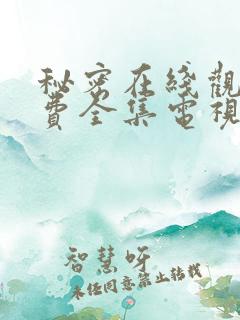 秘密在綫觀
費全集電視
智慧呀
未经同意禁止转载